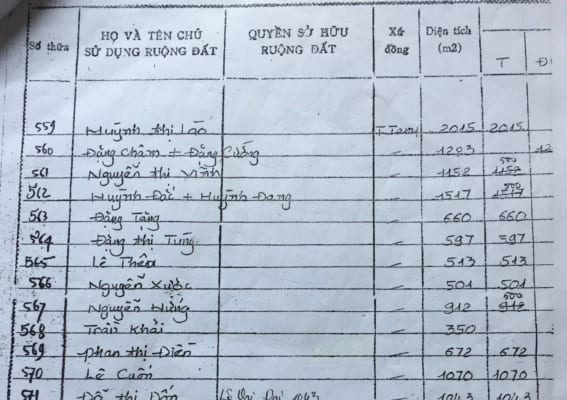 Số thửa HỌ VÀ TÊN CHỦ SỬ DỤNG RUỘNG ĐẤT QUYỀN SỞ HỮU RUỘNG ĐẤT Xứ đồng Diện tích (m2) T
559 Huỳnh thị Láo 2015 2015
560 Đặng Châm + Đặng Cường 1293 12
561 Nguyễn thị Vĩnh — 1152 500 1152
562 Huỳnh Đắc + Huỳnh Đang — 1517 500 1517
563 Đặng Tảng — 660 660
564 Đặng thị Tùng — 597 597
565 Lê Thêa — 513 513
566 Nguyễn Xước — 501 501
567 Nguyễn Hưng — 912 500 912
568 Trần Khải — 350
569 Phan thị Diên — 672 672
570 Lê Cuốn — 1070 1070
571 Đỗ thị Đốn 1043 — 1043 1043